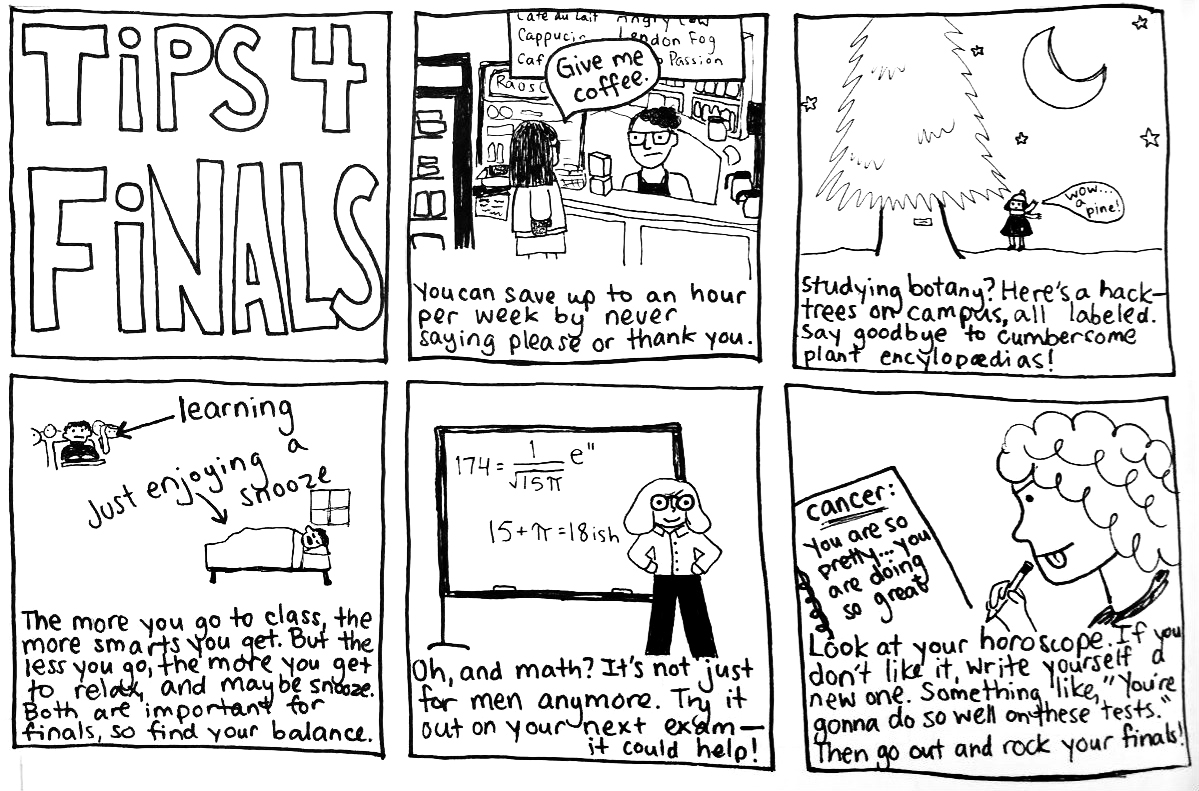 TiPS 4
FiNALS
Café au Lait Angry Cow
Cappucin London Fog
Caf Passion
Raos C
Give me
coffee.
You can save up to an hour
per week by never
saying please or thank you.
WOW...
a
pine!
Studying botany? Here's a hack-
trees on campus, all labeled.
Say goodbye to cumbersome
plant encylopædias!
learning
Just enjoying a
snooze
The more you go to class, the
more smarts you get. But the
less you go, the more you get
to relax, and maybe snooze.
Both are important for
finals, so find your balance.
174 = 1/√15π e"
15+π=18ish
Oh, and math? It's not just
for men anymore. Try it
out on your next exam—
it could help!
cancer:
You are so
pretty... you
are doing
so great
Look at your horoscope. If you
don't like it, write yourself a
new one. Something like, "You're
gonna do so well on these tests."
Then go out and rock your finals!